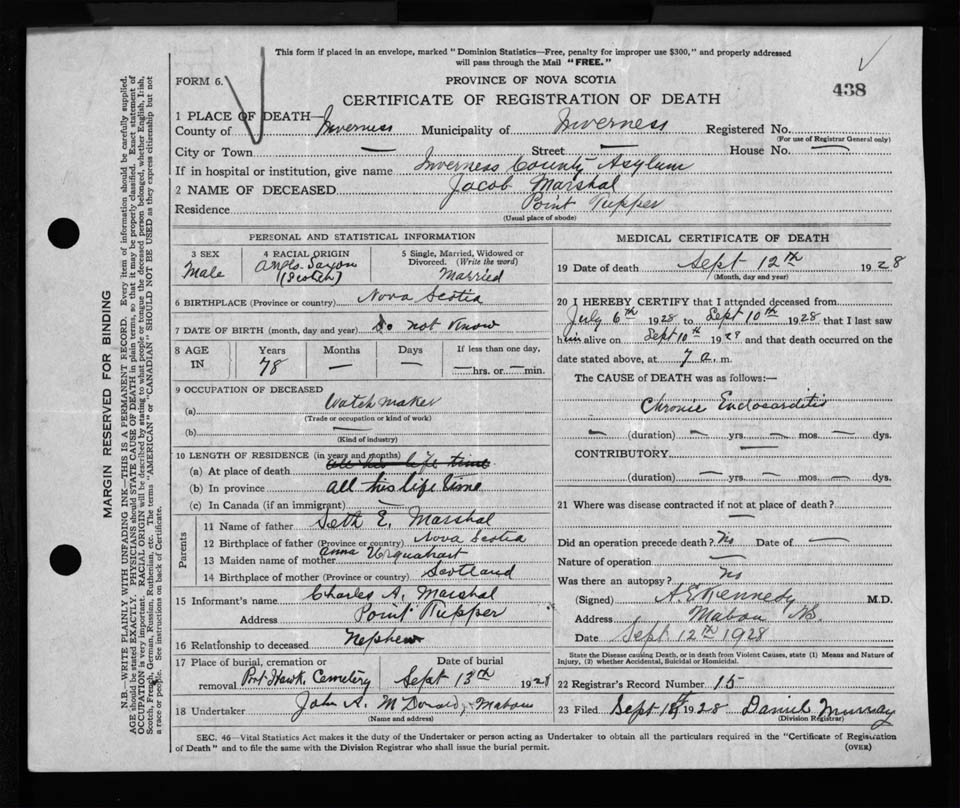 This form if placed in an envelope, marked "Dominion Statistics—Free, penalty for improper use $300," and properly addressed
will pass through the Mail "FREE."
FORM 6.
PROVINCE OF NOVA SCOTIA
438
CERTIFICATE OF REGISTRATION OF DEATH
1 PLACE OF DEATH—
County of Inverness Municipality of Inverness Registered No.
(For use of Registrar General only)
City or Town — Street — House No. —
If in hospital or institution, give name Inverness County Asylum
2 NAME OF DECEASED Jacob Marshal
Residence Point Tupper
(Usual place of abode)
PERSONAL AND STATISTICAL INFORMATION
3 SEX Male
4 RACIAL ORIGIN Anglo-Saxon (Scotch)
5 Single, Married, Widowed or Divorced. (Write the word) Married
6 BIRTHPLACE (Province or country) Nova Scotia
7 DATE OF BIRTH (month, day and year) Do not Know
8 AGE IN Years 78 Months — Days — If less than one day, — hrs. or — min.
9 OCCUPATION OF DECEASED
(a) Watch maker
(Trade or occupation or kind of work)
(b) —
(Kind of industry)
10 LENGTH OF RESIDENCE (in years and months)
(a) At place of death all his life time
(b) In province all his life time
(c) In Canada (if an immigrant) —
Parents
11 Name of father Seth E. Marshal
12 Birthplace of father (Province or country) Nova Scotia
13 Maiden name of mother Anna Urquahart
14 Birthplace of mother (Province or country) Scotland
15 Informant's name Charles A. Marshal
Address Point Tupper
16 Relationship to deceased Nephew
17 Place of burial, cremation or removal Port Hawk. Cemetery
Date of burial Sept 13th 1928
18 Undertaker John A. McDonald, Mabou
(Name and address)
MEDICAL CERTIFICATE OF DEATH
19 Date of death Sept 12th 1928
(Month, day and year)
20 I HEREBY CERTIFY that I attended deceased from
July 6th 1928 to Sept 10th 1928 that I last saw
him alive on Sept 10th 1928 and that death occurred on the
date stated above, at 7 a. m.
The CAUSE of DEATH was as follows:—
Chronic Endocarditis
— (duration) — yrs. — mos. — dys.
CONTRIBUTORY —
(duration) — yrs. — mos. — dys.
21 Where was disease contracted if not at place of death?
—
Did an operation precede death? No Date of —
Nature of operation —
Was there an autopsy? No
(Signed) A. E. Kennedy M.D.
Address Mabou N.S.
Date Sept 12th 1928
State the Disease causing Death, or in death from Violent Causes, state (1) Means and Nature of
Injury, (2) whether Accidental, Suicidal or Homicidal.
22 Registrar's Record Number 15
23 Filed Sept 1928 Daniel Murray
(Division Registrar)
SEC. 46—Vital Statistics Act makes it the duty of the Undertaker or person acting as Undertaker to obtain all the particulars required in the "Certificate of Registration
of Death" and to file the same with the Division Registrar who shall issue the burial permit.
(OVER)
MARGIN RESERVED FOR BINDING
N.B.—WRITE PLAINLY, WITH UNFADING INK—THIS IS A PERMANENT RECORD. Every item of information should be carefully supplied.
AGE should be stated EXACTLY. PHYSICIANS should STATE CAUSE OF DEATH in plain terms, so that it may be properly classified. Exact statement of
OCCUPATION is very important. RACIAL ORIGIN will be described by stating to what people or tongue the deceased person belonged, whether English, Irish,
Scotch, French, German, Russian, Ruthenian, etc. The terms "AMERICAN" or "CANADIAN" SHOULD NOT BE USED as they express citizenship but not
a race or people. See instructions on back of Certificate.